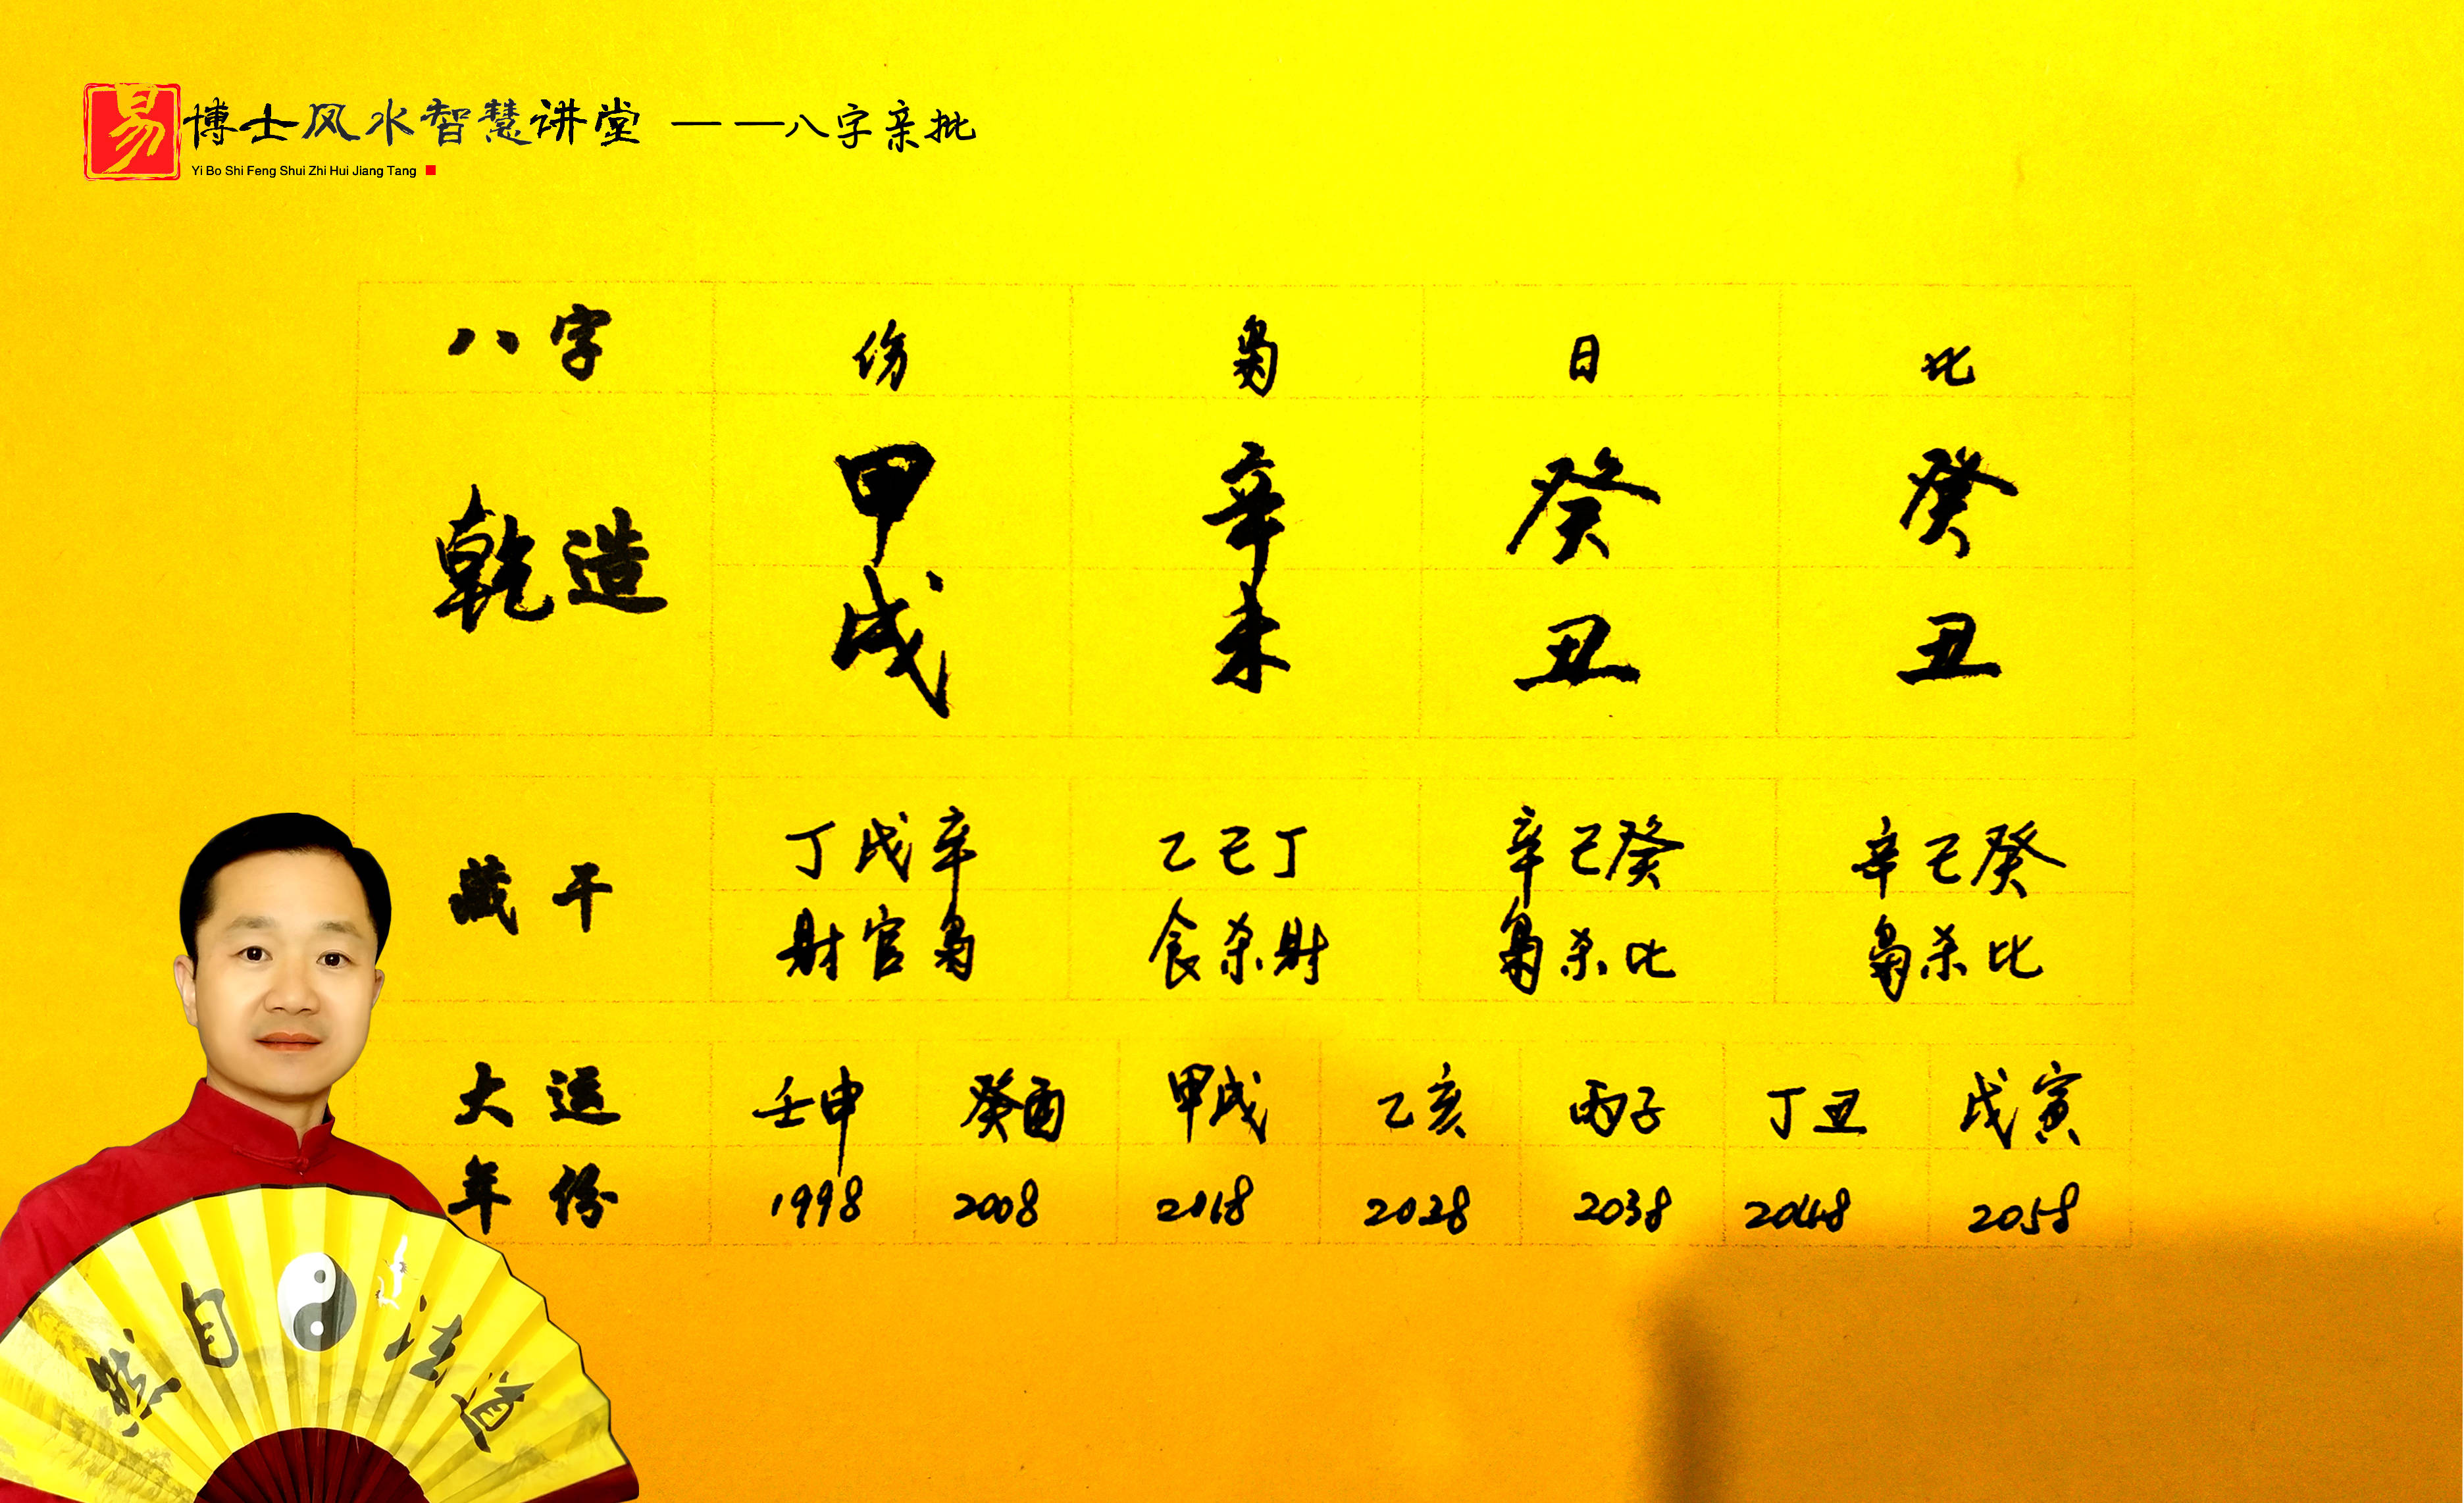 易博士风水智慧讲堂 ——八字亲批
Yi Bo Shi Feng Shui Zhi Hui Jiang Tang
八字 伤 枭 日 比
乾造 甲 辛 癸 癸
戌 未 丑 丑
藏干 丁戊辛 乙己丁 辛己癸 辛己癸
财官枭 食杀财 枭杀比 枭杀比
大运 壬申 癸酉 甲戌 乙亥 丙子 丁丑 戊寅
年份 1998 2008 2018 2028 2038 2048 2058
然自法道